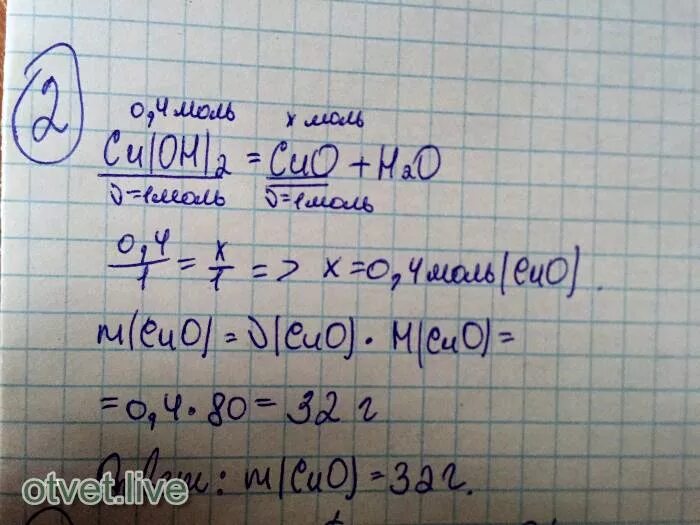 2
0,4 моль x моль
Cu(OH)2 = CuO + H2O
ν=1моль ν=1моль
0,4/1 = x/1 => x=0,4 моль (CuO).
m(CuO) = ν(CuO) · M(CuO) =
= 0,4 · 80 = 32 г
Ответ: m(CuO) = 32 г.
otvet.live